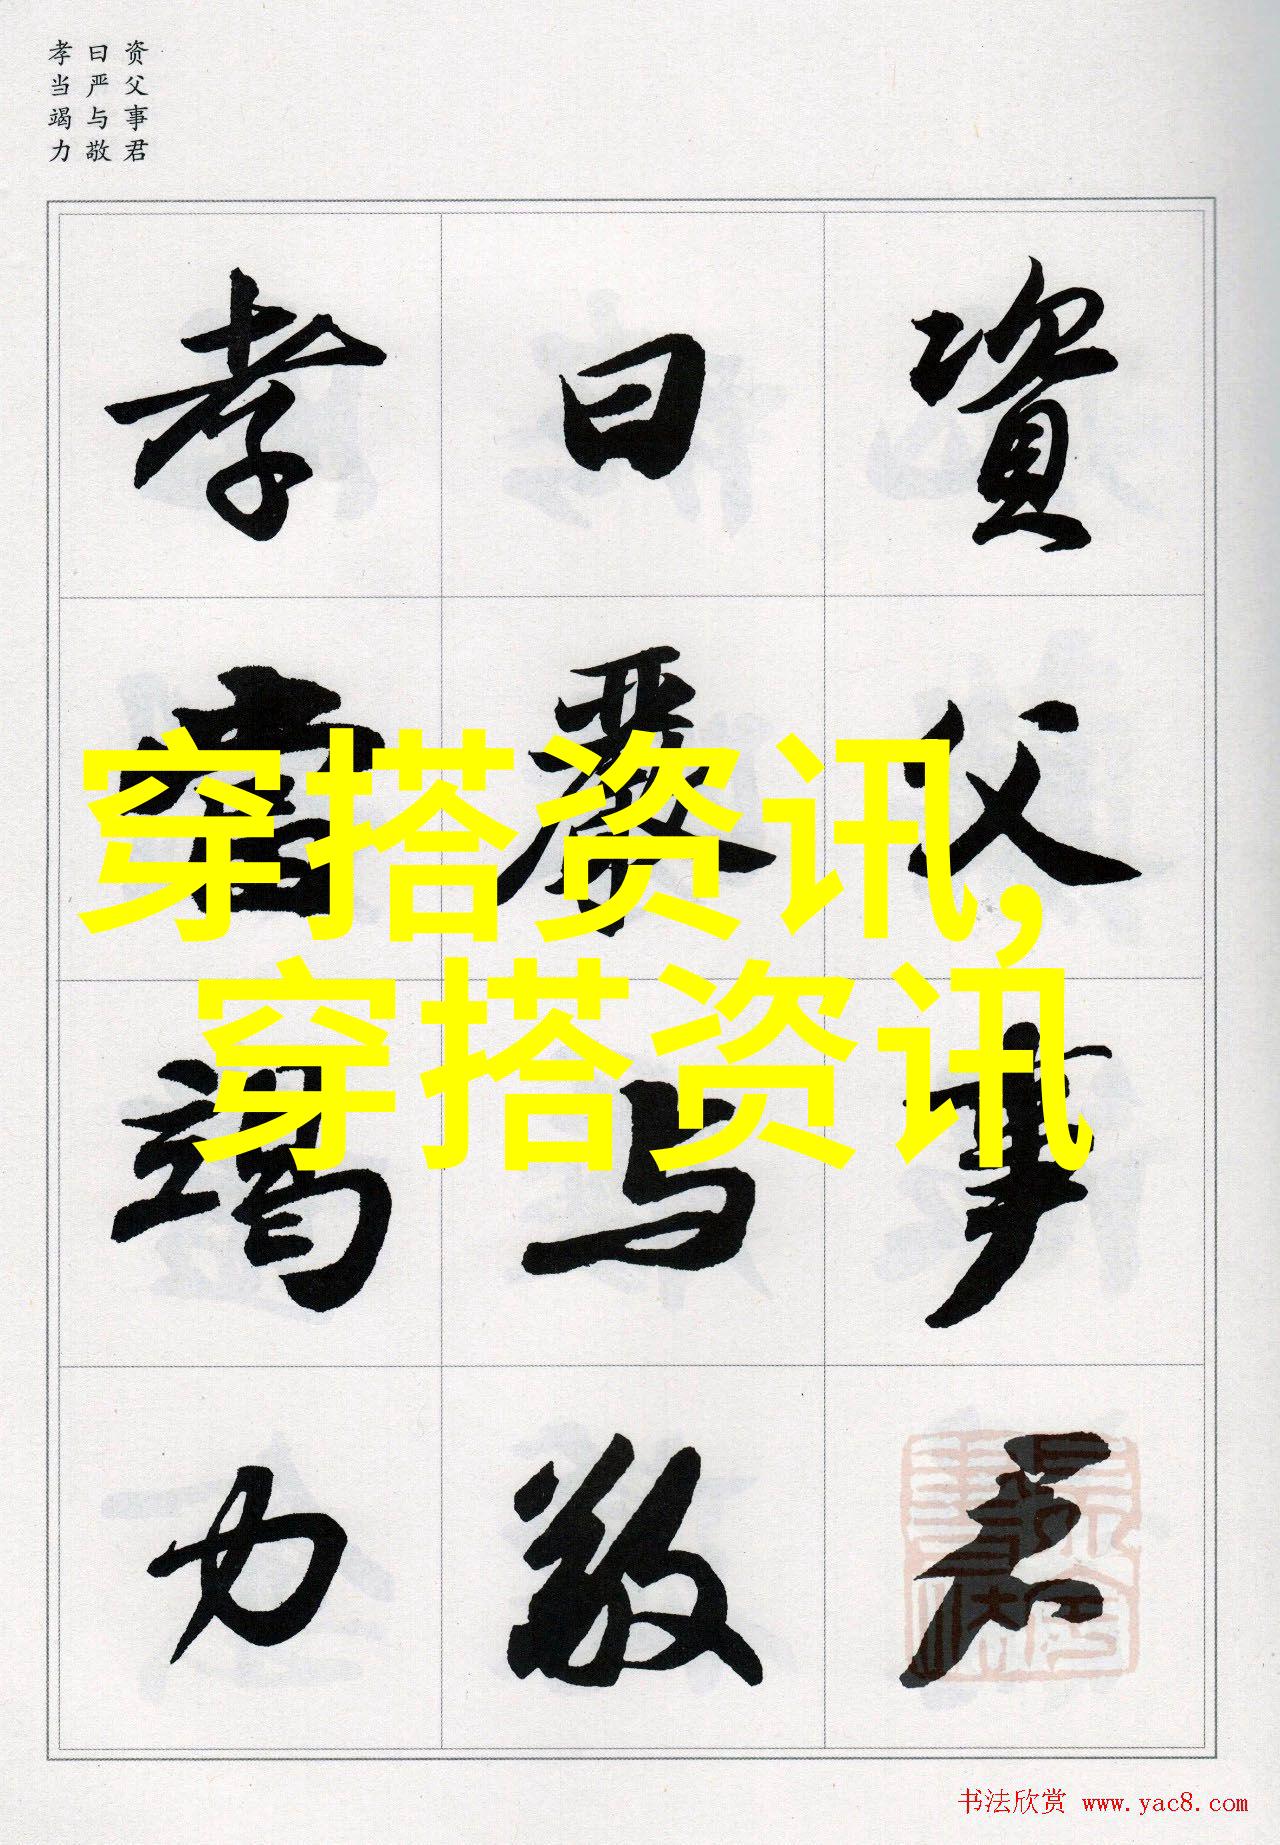 资父事君
曰严与敬
孝当竭力
資父事君
曰嚴与敬
孝當竭力
穿搭资讯,
穿搭资讯
书法欣赏 www.yac8.com